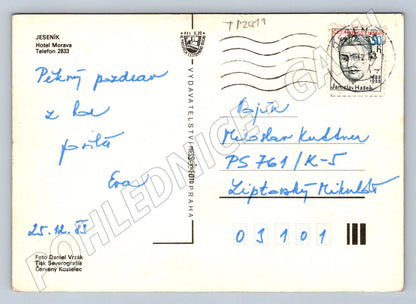 JESENÍK
Hotel Morava
Telefon 2833
Pěkný pozdrav
z hor
posílá
Eva
25.12.83
Foto Daniel Vrzák
Tisk Severografia
Červený Kostelec
VYDAVATELSTVÍ PRAHA
TP2411
Jaroslav Hašek
Vojín
Miloslav Kuttner
PS 761/K-5
Liptovský Mikuláš
03101
POHLEDNICE GALU